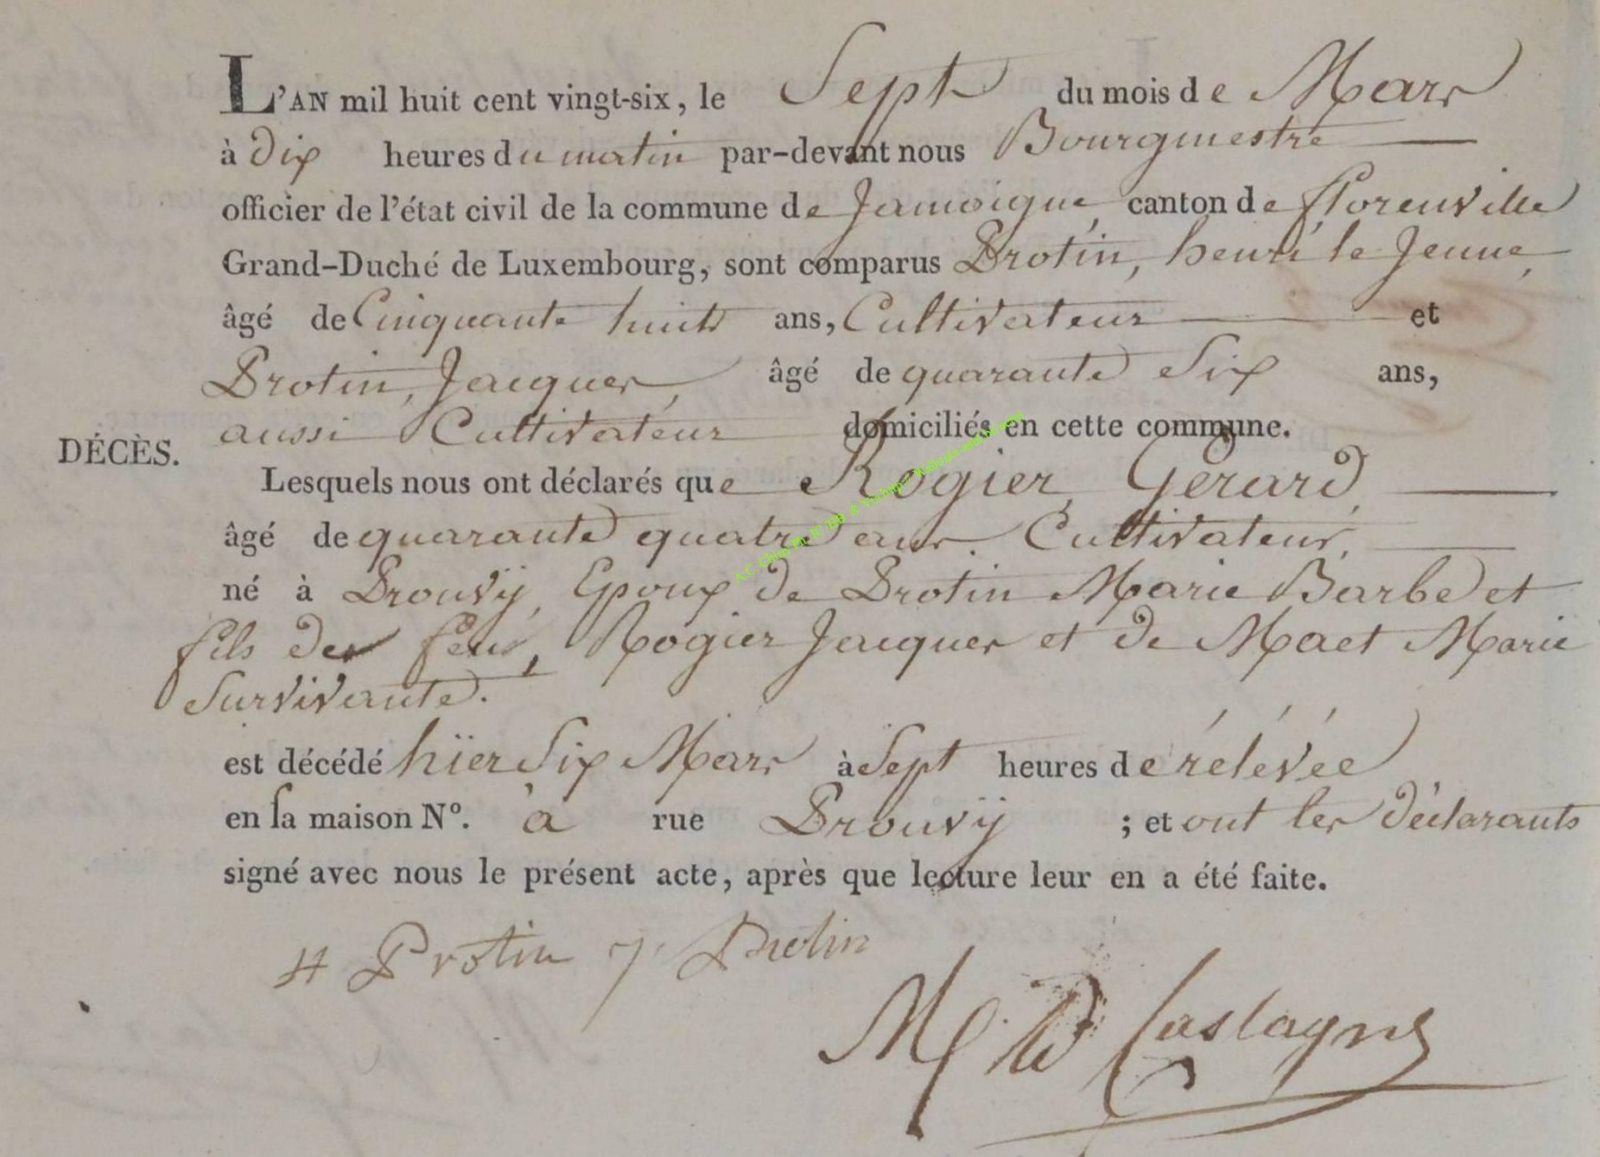 L'AN mil huit cent vingt-six, le Sept du mois de Mars
à dix heures du matin par-devant nous Bourgmestre
officier de l'état civil de la commune de Jamoigne, canton de florenville
Grand-Duché de Luxembourg, sont comparus Protin, henri le Jeune,
âgé de Cinquante huits ans, Cultivateur et
Protin, Jacques, âgé de quarante Six ans,
aussi Cultivateur domiciliés en cette commune.
DÉCÈS.
Lesquels nous ont déclarés que Rogier, Gérard,
âgé de quarante quatre ans. Cultivateur,
né à Prouvÿ, Epoux de Protin Marie Barbe et
fils de feu, Rogier Jacques et de Maet Marie
Survivante.
est décédé hïer Six Mars à Sept heures de rélévée
en sa maison N°. à rue Prouvÿ ; et ont les déclarants
signé avec nous le présent acte, après que lecture leur en a été faite.
H Protin J Protin